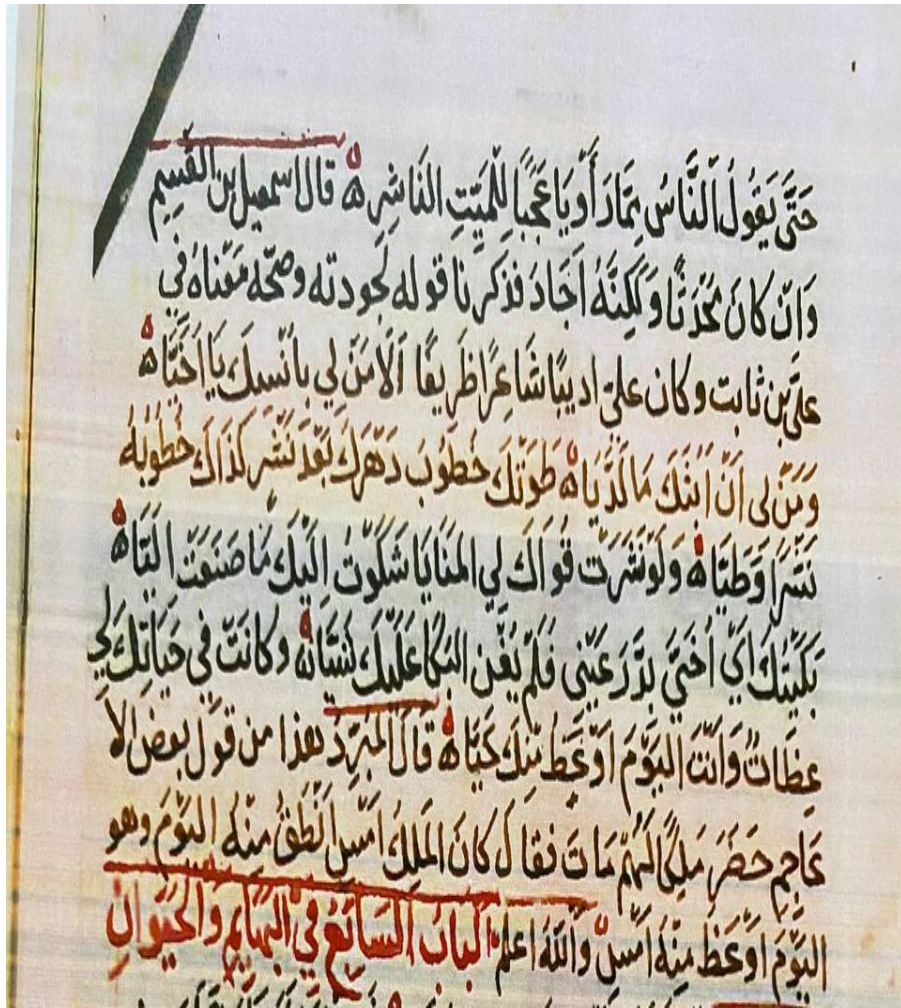 حَتَّى يَقُولُ النَّاسُ مِمَّا رَأَوْ يَا عَجَبًا لِلْمَيِّتِ النَّاشِرِ ه قال اسمعيل بن القسِمِ
وَان كانَ مُحْدَثًا وَلَكِنَّهُ اجَادَ فذكرنا قوله لجودته وصحّه مَعْنَاهُ في
علىّ بن ثابت وكان علىّ اديبًا شاعرًا ظَرِيفًا اَلَا مَنْ لي بانْسِكَ يَا اُخَيَّا ه
وَمَنْ لي اَنْ اَبُثَّكَ مَا لَدَيَّا ه طَوَتْكَ خُطُوبُ دَهْرِكَ بَعْدَ نَشْرٍ كَذَاكَ خُطُوبُهُ
نَشْرًا وَطَيَّا ه وَلَوْ نَشَرَتْ قُوَاكَ لِي المَنَايَا شَكَوْتُ اِلَيْكَ مَا صَنَعَتْ اِلَيَّا ه
بَكَيْتُكَ اَيْ اُخَيَّ بِدَرِّ عَيْنِي فَلَمْ يُغْنِ البُكَا عَلَيْكَ شَيَّا ه وكانَتْ في حَيَاتِكَ لي
عِظَاتٌ وَاَنْتَ اليَوْمَ اَوْعَظُ مِنْكَ حَيَّا ه قالَ المُبَرِّدُ هذا من قول بعض الا
عَاجِمِ حَضَرَ مَلِكًا لَهُمْ مَاتَ فقال كانَ المَلِكُ اَمْسِ اَنْطَقَ مِنْهُ اليَوْمَ وهو
اليَوْمَ اَوْعَظُ مِنْهُ اَمْسِ وَاللهُ اعلم البَابُ السَّابِعُ فِي البَهَايِمِ وَالحَيَوَانِ